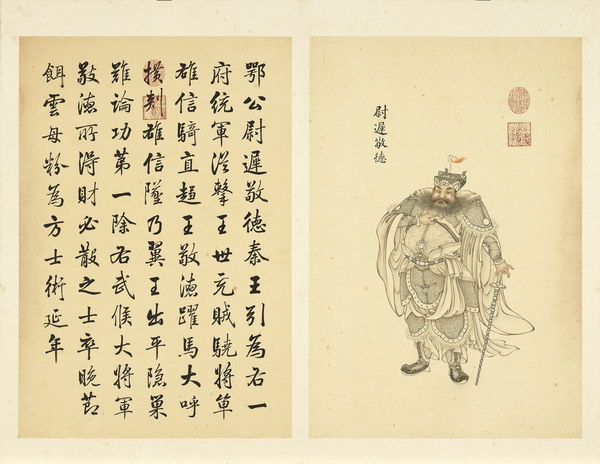 尉遲敬德
鄂公尉遲敬德秦王引為右一
府統軍從擊王世充賊驍將單
雄信騎直趨王敬德躍馬大呼
橫刺雄信墜乃翼王出平隱巢
難論功第一除右武候大將軍
敬德所得財必散之士卒晚節
餌雲母粉為方士術延年